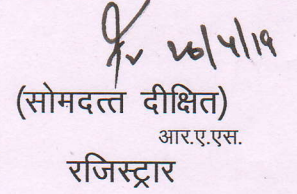 20/4/19
(सोमदत्त दीक्षित)
आर.ए.एस.
रजिस्ट्रार